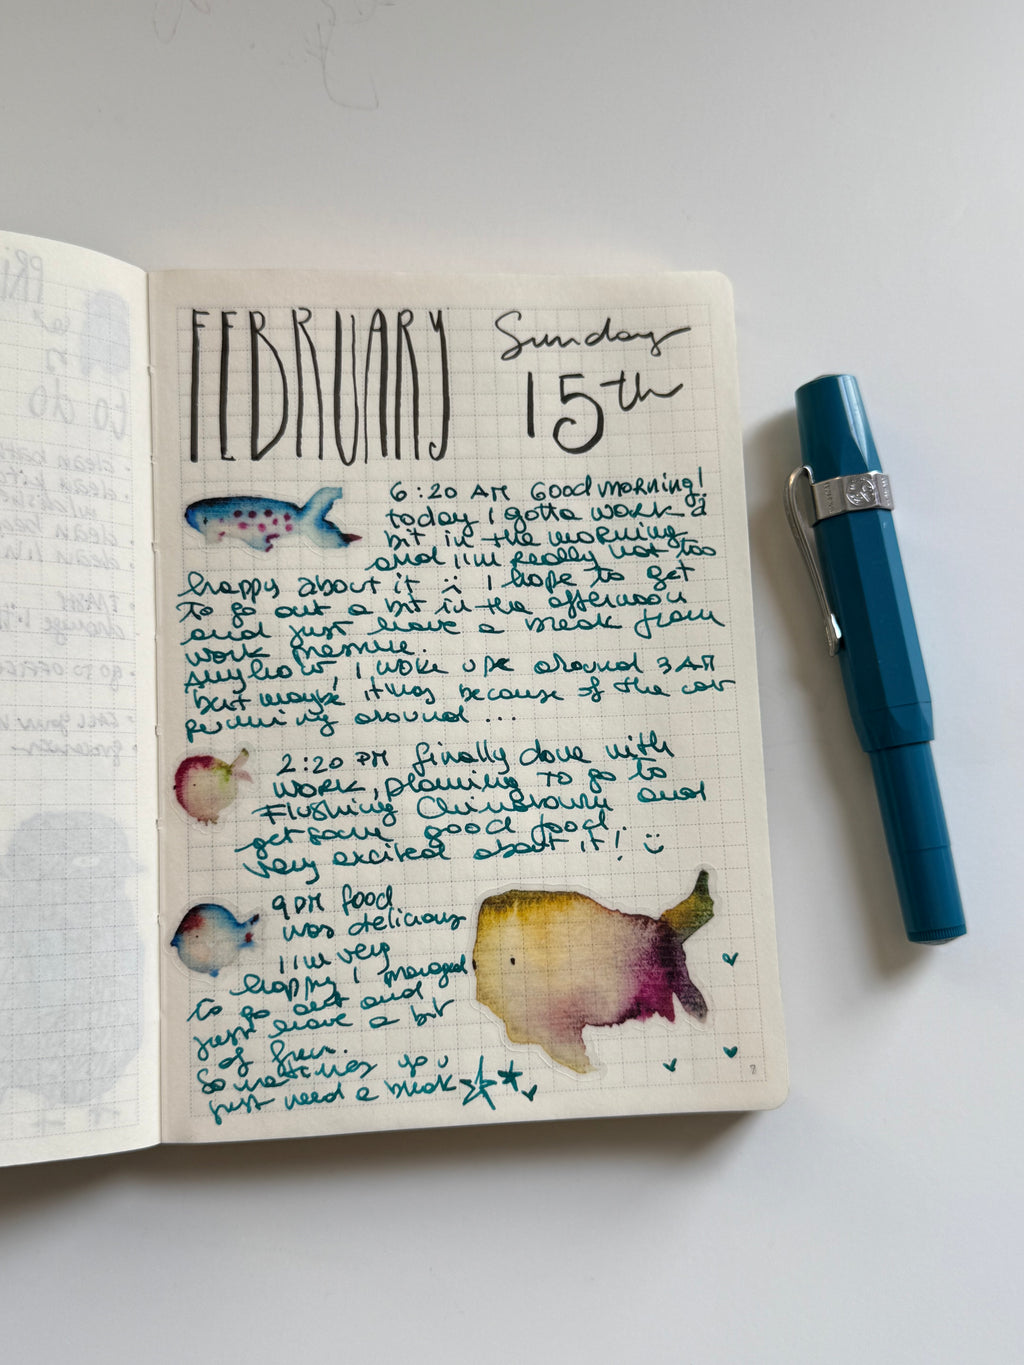 FEBRUARY
Sunday
15th
6:20 AM Good morning!
today I gotta work a
bit in the morning
and I'm really not too
happy about it :( I hope to get
to go out a bit in the afternoon
and just have a break from
work pressure.
Anyhow, I woke up around 3 AM
but maybe it was because of the car
running around ...
2:20 PM finally done with
work, planning to go to
Flushing Chinatown and
get some good food.
very excited about it! :)
9PM food
was delicious
I'm very
happy I managed
to go out and
just have a bit
of fun.
Sometimes you
just need a break
7
PRI
to do
• clean bath
• clean kitc
• clean
• clean
• change
• go to office